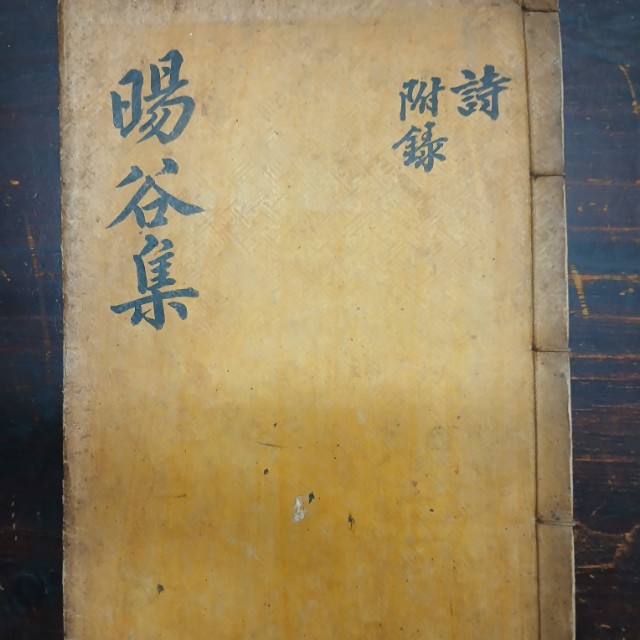 詩
附録
暘谷集